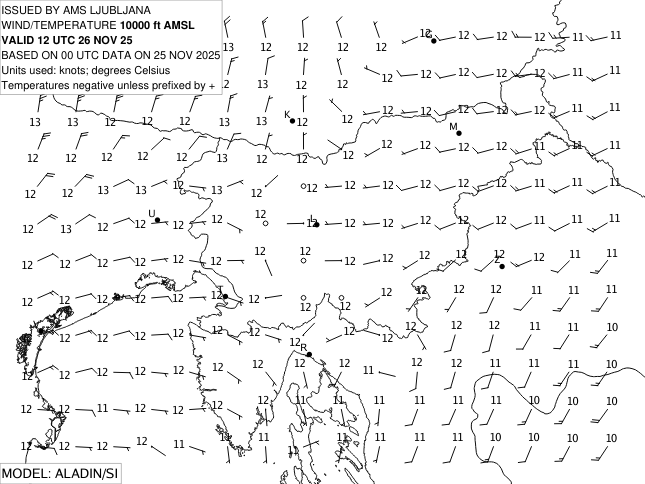 ISSUED BY AMS LJUBLJANA
WIND/TEMPERATURE 10000 ft AMSL
VALID 12 UTC 26 NOV 25
BASED ON 00 UTC DATA ON 25 NOV 2025
Units used: knots; degrees Celsius
Temperatures negative unless prefixed by +
13 12 12 12 12 12 G 12 12 12 11 11
13 12 12 12 12 12 12 12 11 11
13 13 13 12 13 13 K 12 12 12 12 12 11 11
M
12 12 12 12 13 13 12 12 12 12 12 12 12 11 11 11
12 12 13 13 12 13 12 12 12 12 12 12 11 11 11
U
12 13 12 12 12 12 12 12 12 12 12 12 11 11 11
12 12 12 12 12 12 12 12 12 12 12 12 12 11 11
Z
12 12 12 12 12 12 12 12 12 12 12 11 11 11
12 12 12 12 12 12 12 12 12 12 12 11 11 10
R
12 12 12 12 12 12 12 12 12 11 12 12 11 11 11 10
12 12 11 12 12 12 12 11 11 11 11 11 11 10 10 10
12 12 12 12 11 11 11 11 11 11 11 11 10 10 10 10
MODEL: ALADIN/SI